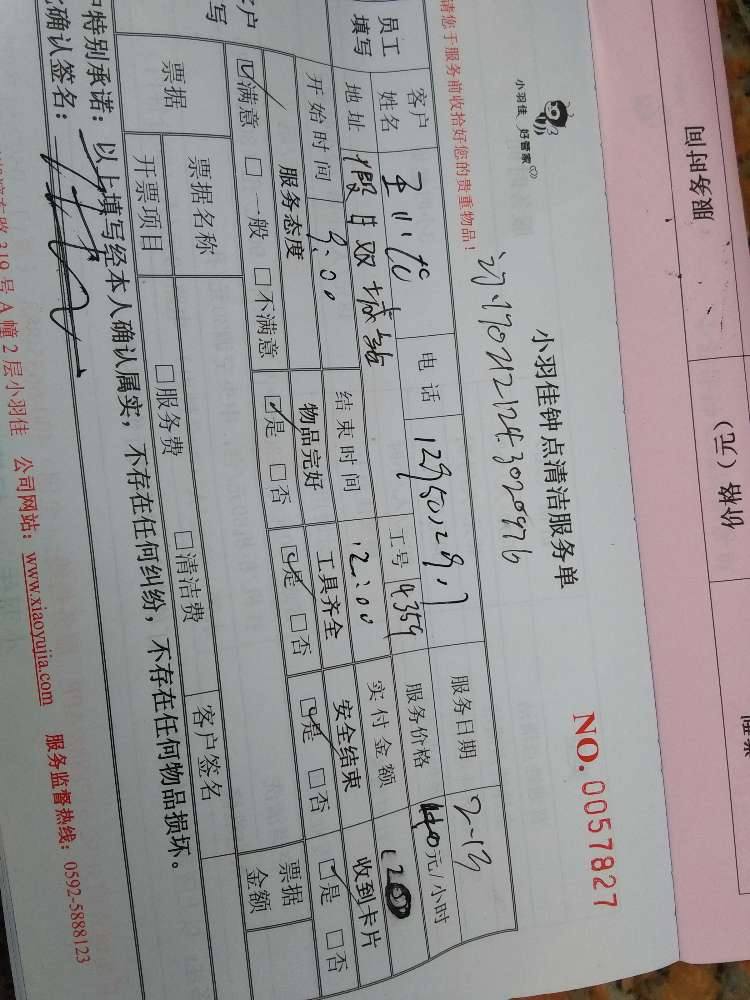 服务时间
价格（元）
小羽佳 好管家
小羽佳钟点清洁服务单
NO. 0057827
请您于服务前收拾好您的贵重物品！
员工
填写
客户
姓名
电话
服务日期
2-13
地址
假日
城
工号
4359
服务价格
40元/小时
开始时间
9:00
结束时间
12:00
实付金额
120
服务态度
物品完好
工具齐全
安全结束
收到卡片
☑满意 □一般 □不满意
☑是 □否
☑是 □否
☑是 □否
☑是 □否
票据
票据名称
□服务费 □清洁费
客户签名
票据
金额
开票项目
特别承诺：以上填写经本人确认属实，不存在任何纠纷，不存在任何物品损坏。
确认签名：
319号A幢2层小羽佳 公司网站：www.xiaoyujia.com 服务监督热线：0592-5888123